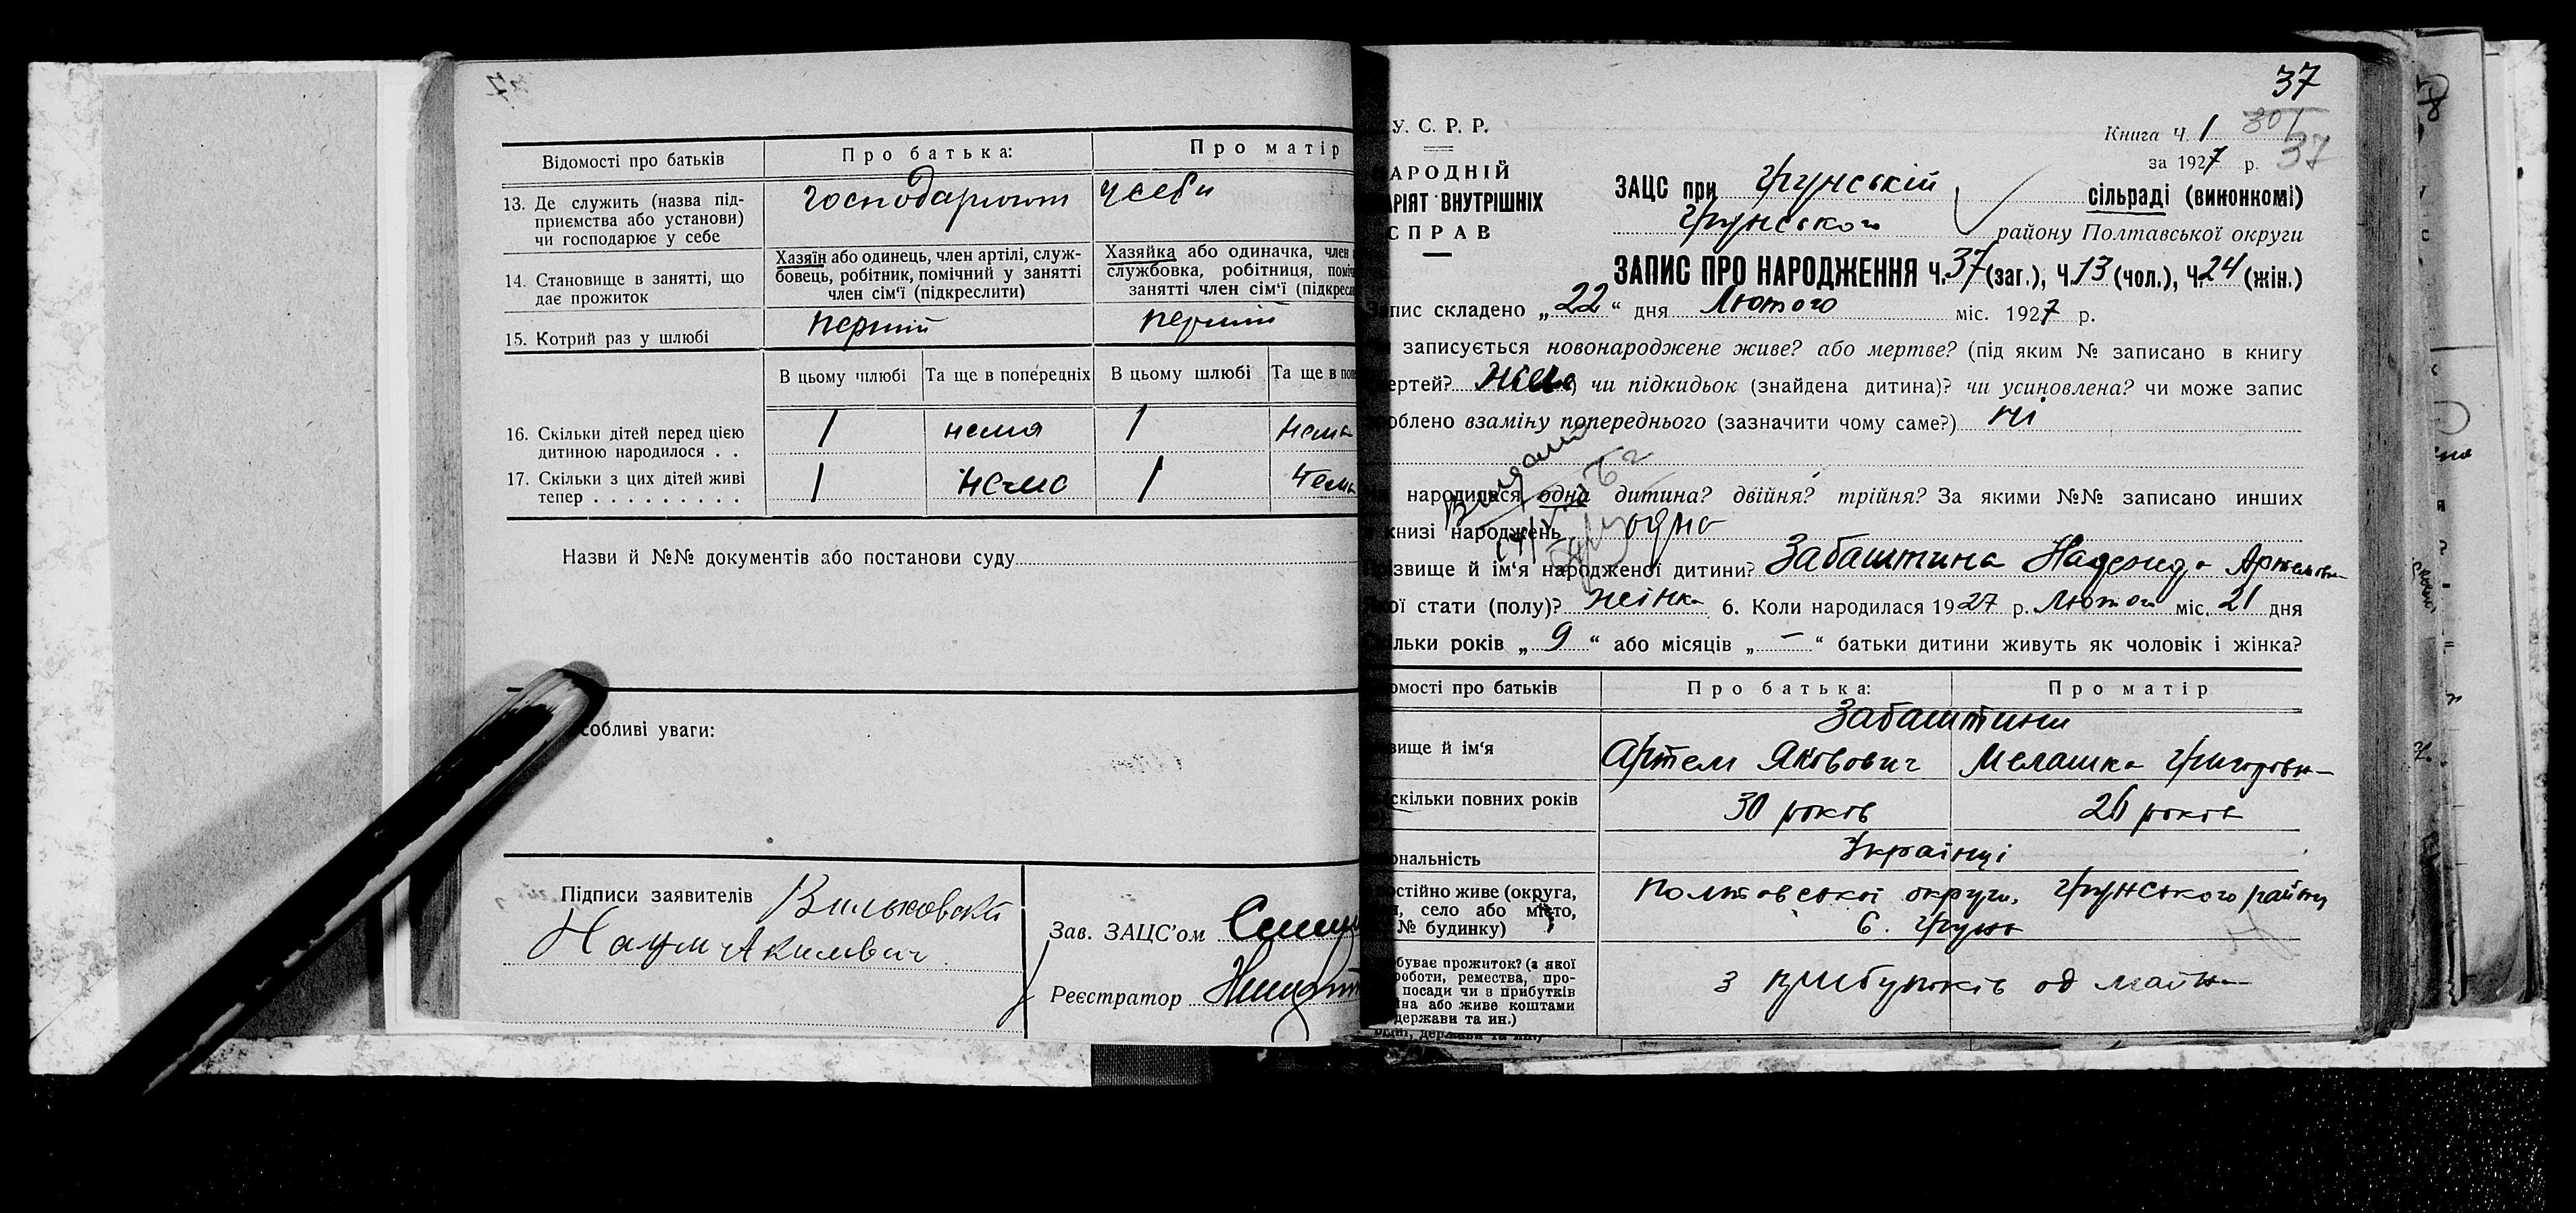 Відомості про батьків
Про батька:
Про матір
13. Де служить (назва під-
приємства або установи)
чи господарює у себе
господарюют у себи
14. Становище в занятті, що
дає прожиток
Хазяїн або одинець, член артілі, служ-
бовець, робітник, помічний у занятті
член сім'ї (підкреслити)
Хазяйка або одиначка, член
службовка, робітниця,
занятті член сім'ї
15. Котрий раз у шлюбі
перший
перший
В цьому шлюбі
Та ще в попередніх
В цьому шлюбі
Та ще в
16. Скільки дітей перед цією
дитиною народилося . .
1
нема
1
нема
17. Скільки з цих дітей живі
тепер . . . . . . . . .
1
нема
1
нема
Назви й №№ документів або постанови суду
собливі уваги:
Підписи заявителів
Вильковский
Наум Акимович
Зав. ЗАЦС'ом
Реєстратор
37
У. С. Р. Р.
АРОДНІЙ
АРІЯТ ВНУТРІШНІХ
СПРАВ
Книга Ч. 1
37
за 1927 р.
ЗАЦС при Грунській сільраді (виконкомі)
Грунського району Полтавської округи
ЗАПИС ПРО НАРОДЖЕННЯ Ч. 37 (заг.), Ч. 13 (чол.), Ч. 24 (жін.)
пис складено „22“ дня Лютого міс. 1927 р.
записується новонароджене живе? або мертве? (під яким № записано в книгу
ертей? чи підкидьок (знайдена дитина)? чи усиновлена? чи може запис
облено взаміну попереднього (зазначити чому саме?) ні
народилася одна дитина? двійня? трійня? За якими №№ записано инших
книзі народжень одна
звище й ім'я народженої дитини? Забаштина Надежда Артемовна
ої стати (полу)? жінка 6. Коли народилася 1927 р. Лютого міс. 21 дня
льки років „9“ або місяців „—“ батьки дитини живуть як чоловік і жінка?
омості про батьків
Про батька:
Про матір
Забаштини
вище й ім'я
Артем Яковович
Мелашка Григоровна
скільки повних років
30 років
26 років
ональність
Українці
остійно живе (округа,
село або місто,
№ будинку)
Полтавської округи, Грунського району
С. Грунь
буває прожиток? (з якої
роботи, ремества, про-
посади чи з прибутків
йна або живе коштами
держави та ин.)
з прибутків од майна